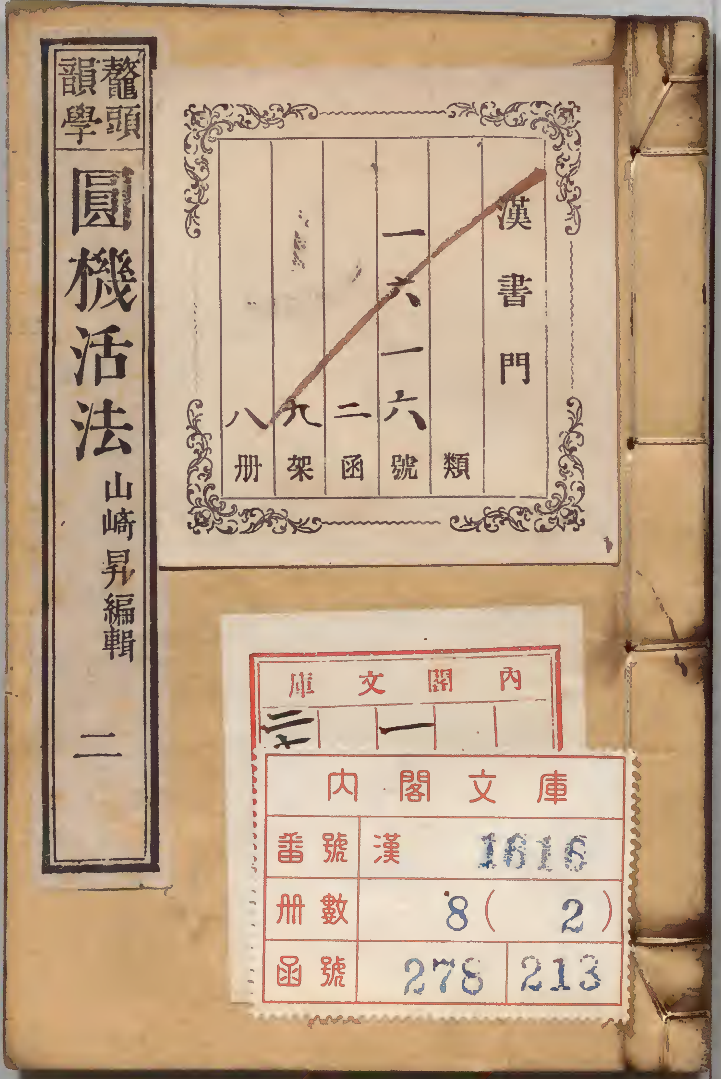 鼇頭
韻學
圓機活法
山﨑昇編輯
二
漢書門
類
一六一六號
二函
九架
八册
內閣文庫
一
内閣文庫
番號 漢 1616
册數 8(2)
函號 278 213